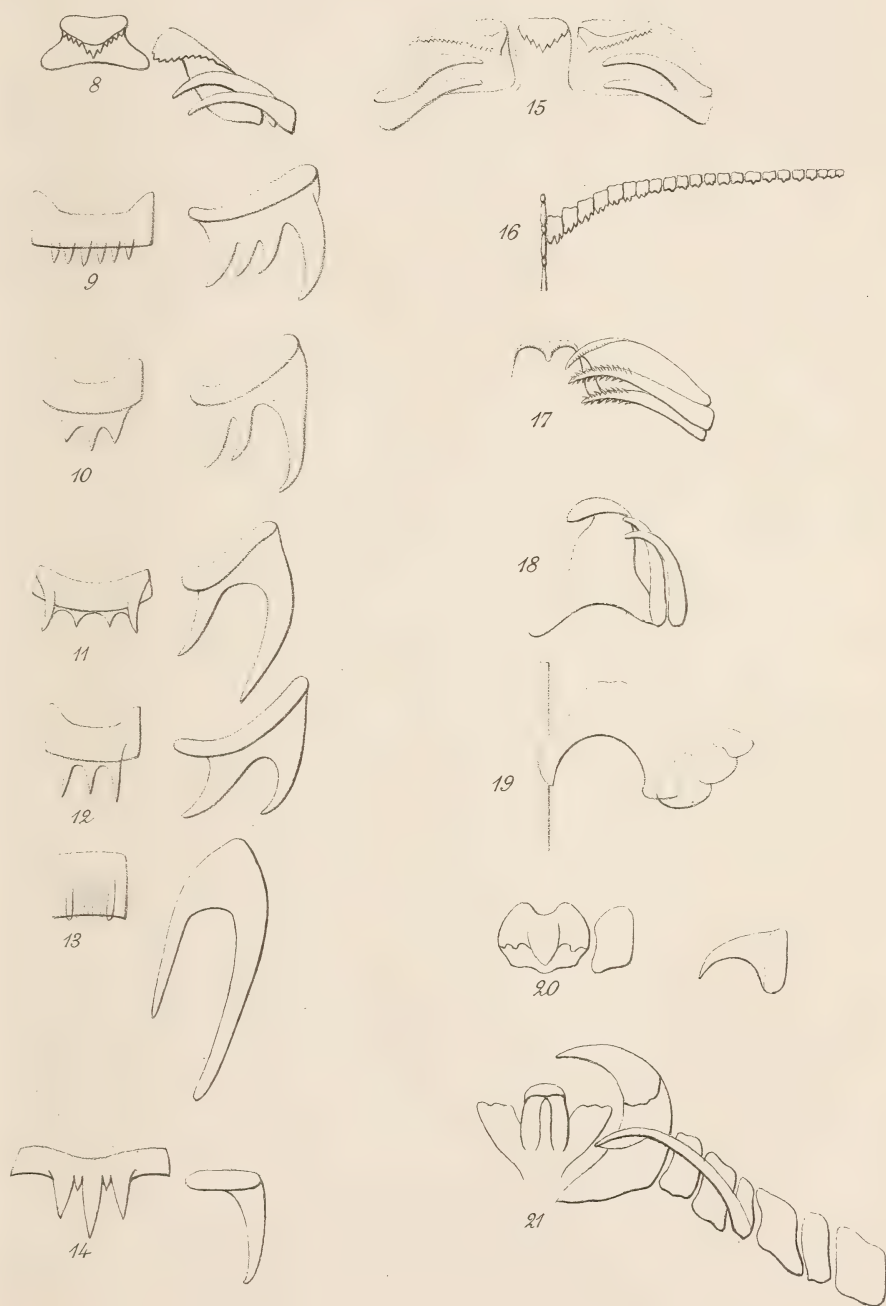 8
9
10
11
12
13
14
15
16
17
18
19
20
21